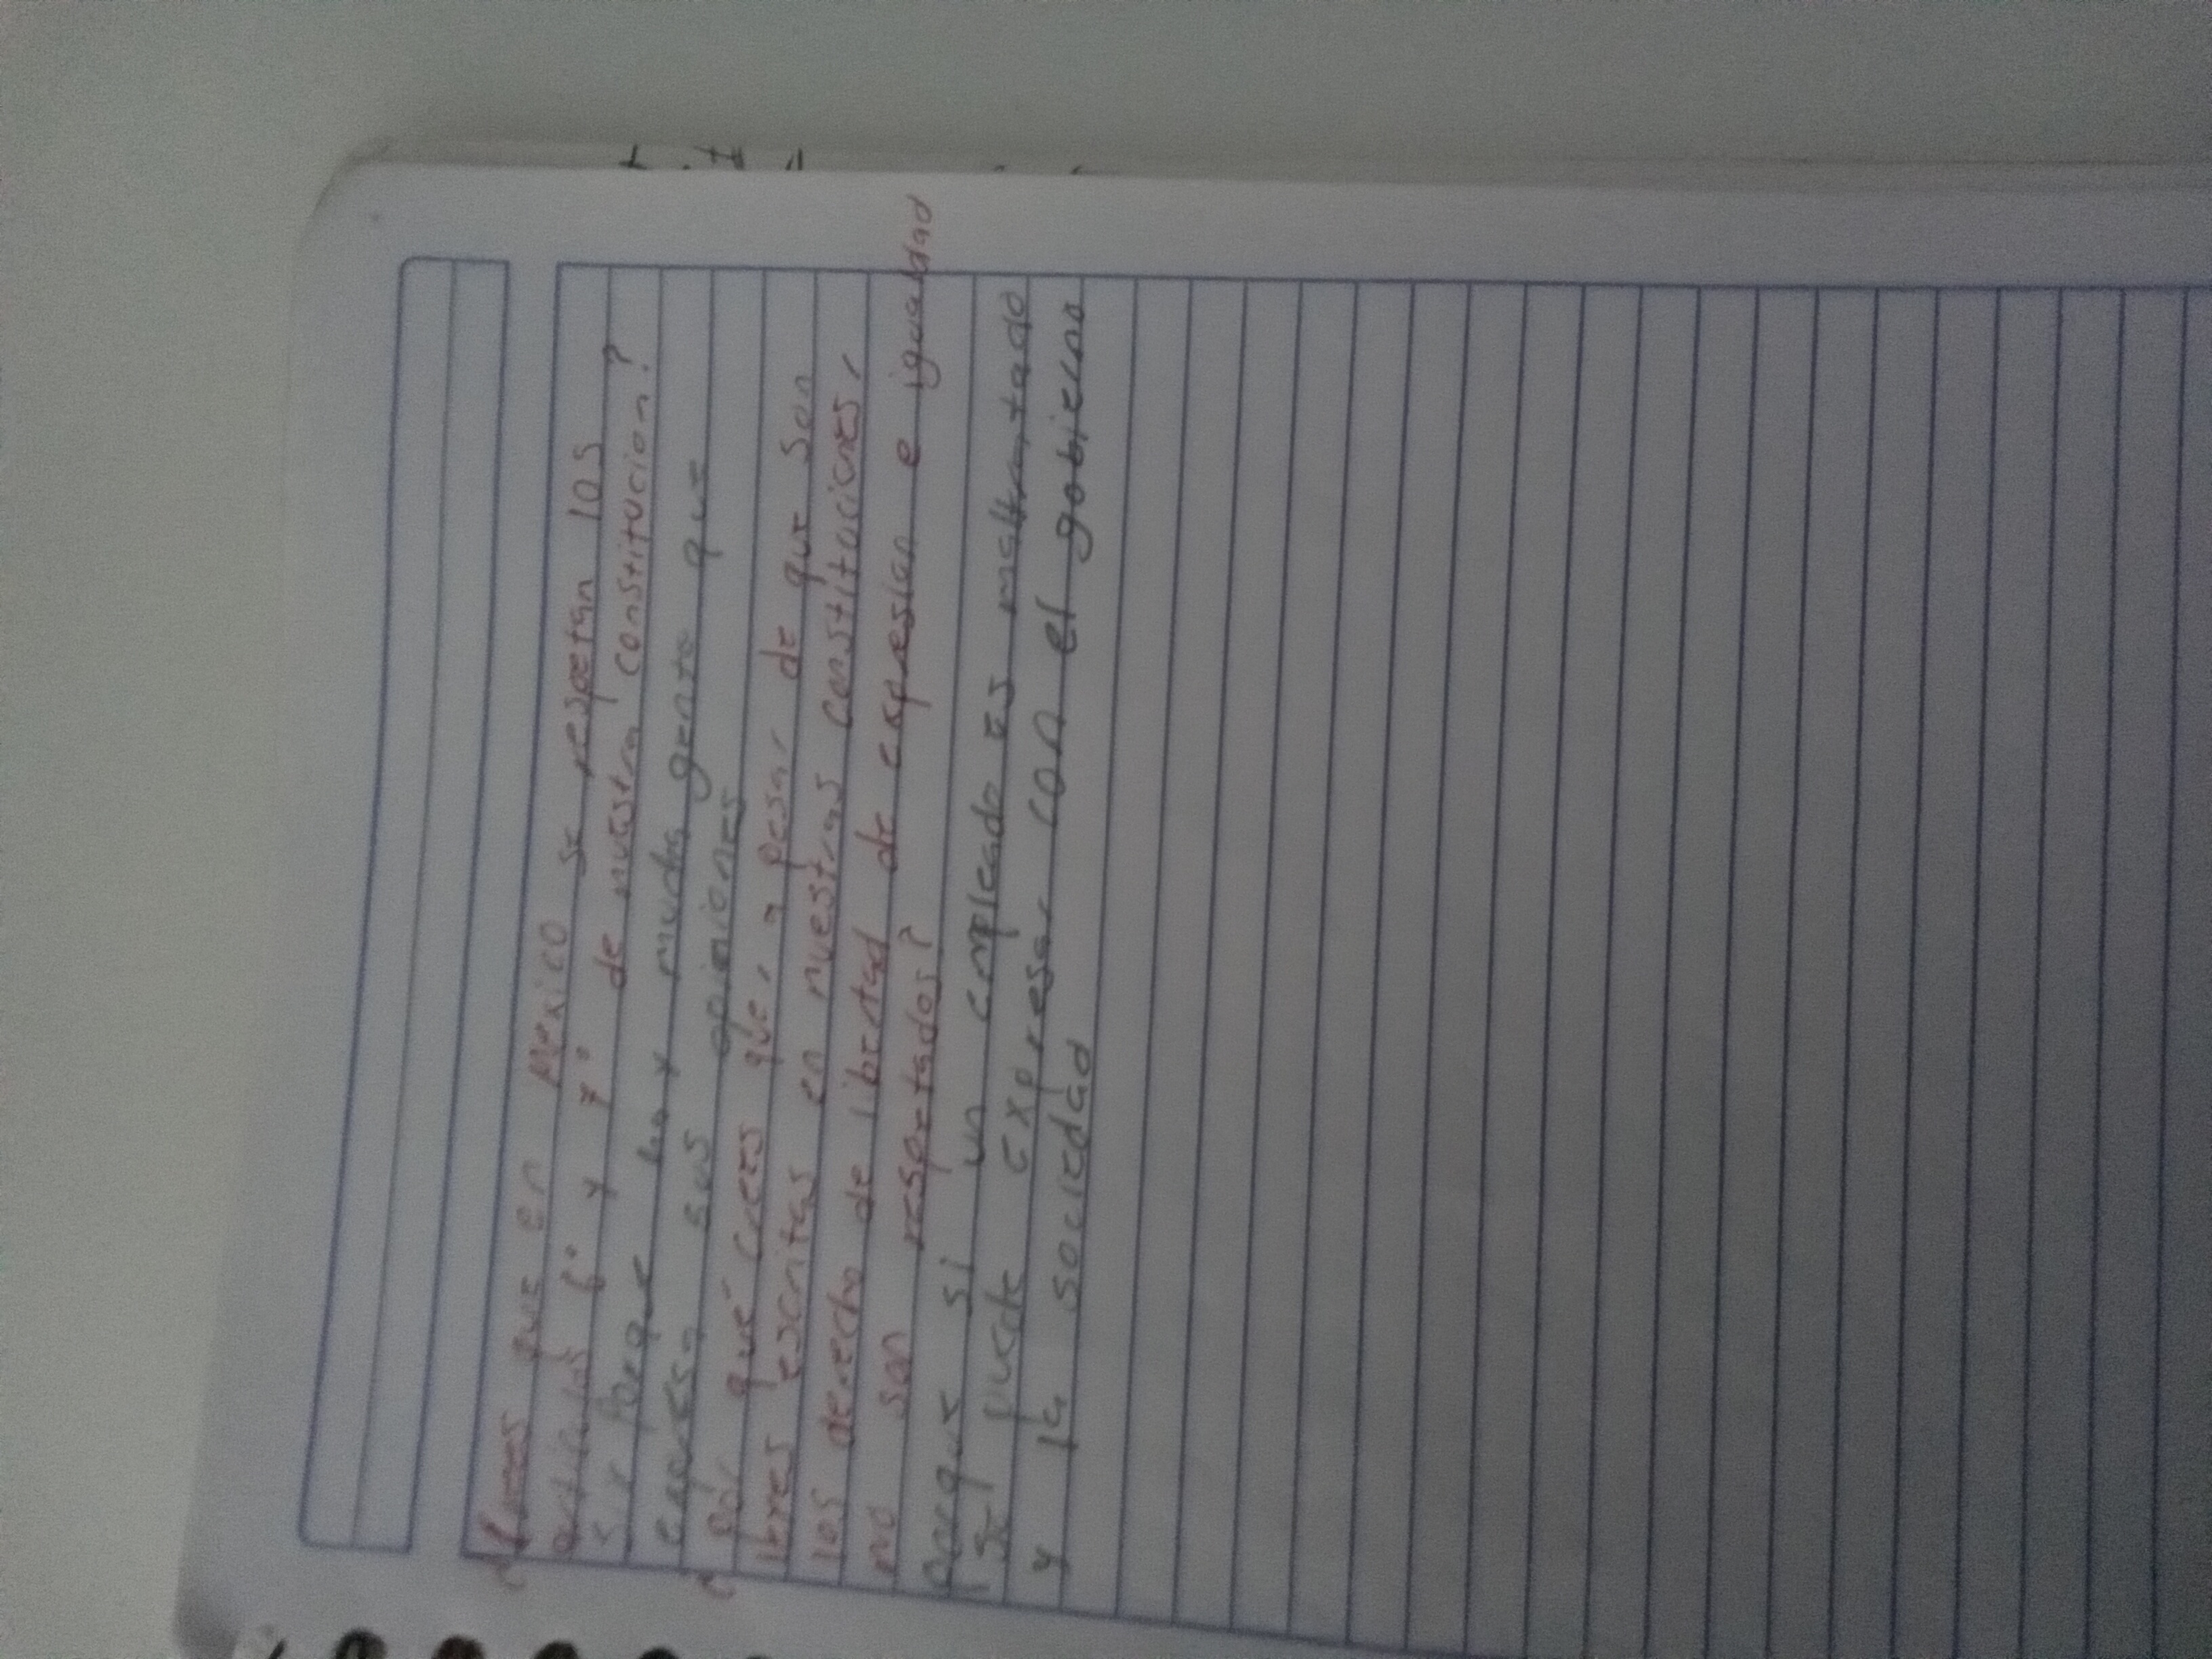 ¿Crees que en Mexico se respetan los
articulos 6° y 7° de nuestra constitucion?
si porque hay mucha gente que
expresa sus opiniones
¿Por qué crees que, a pesar de que son
escritas en nuestras constituciones,
los derecho de libertad de expresion e igualdad
no son respetados?
porque si un empleado es maltratado
se puede expresar con el gobierno
y la sociedad